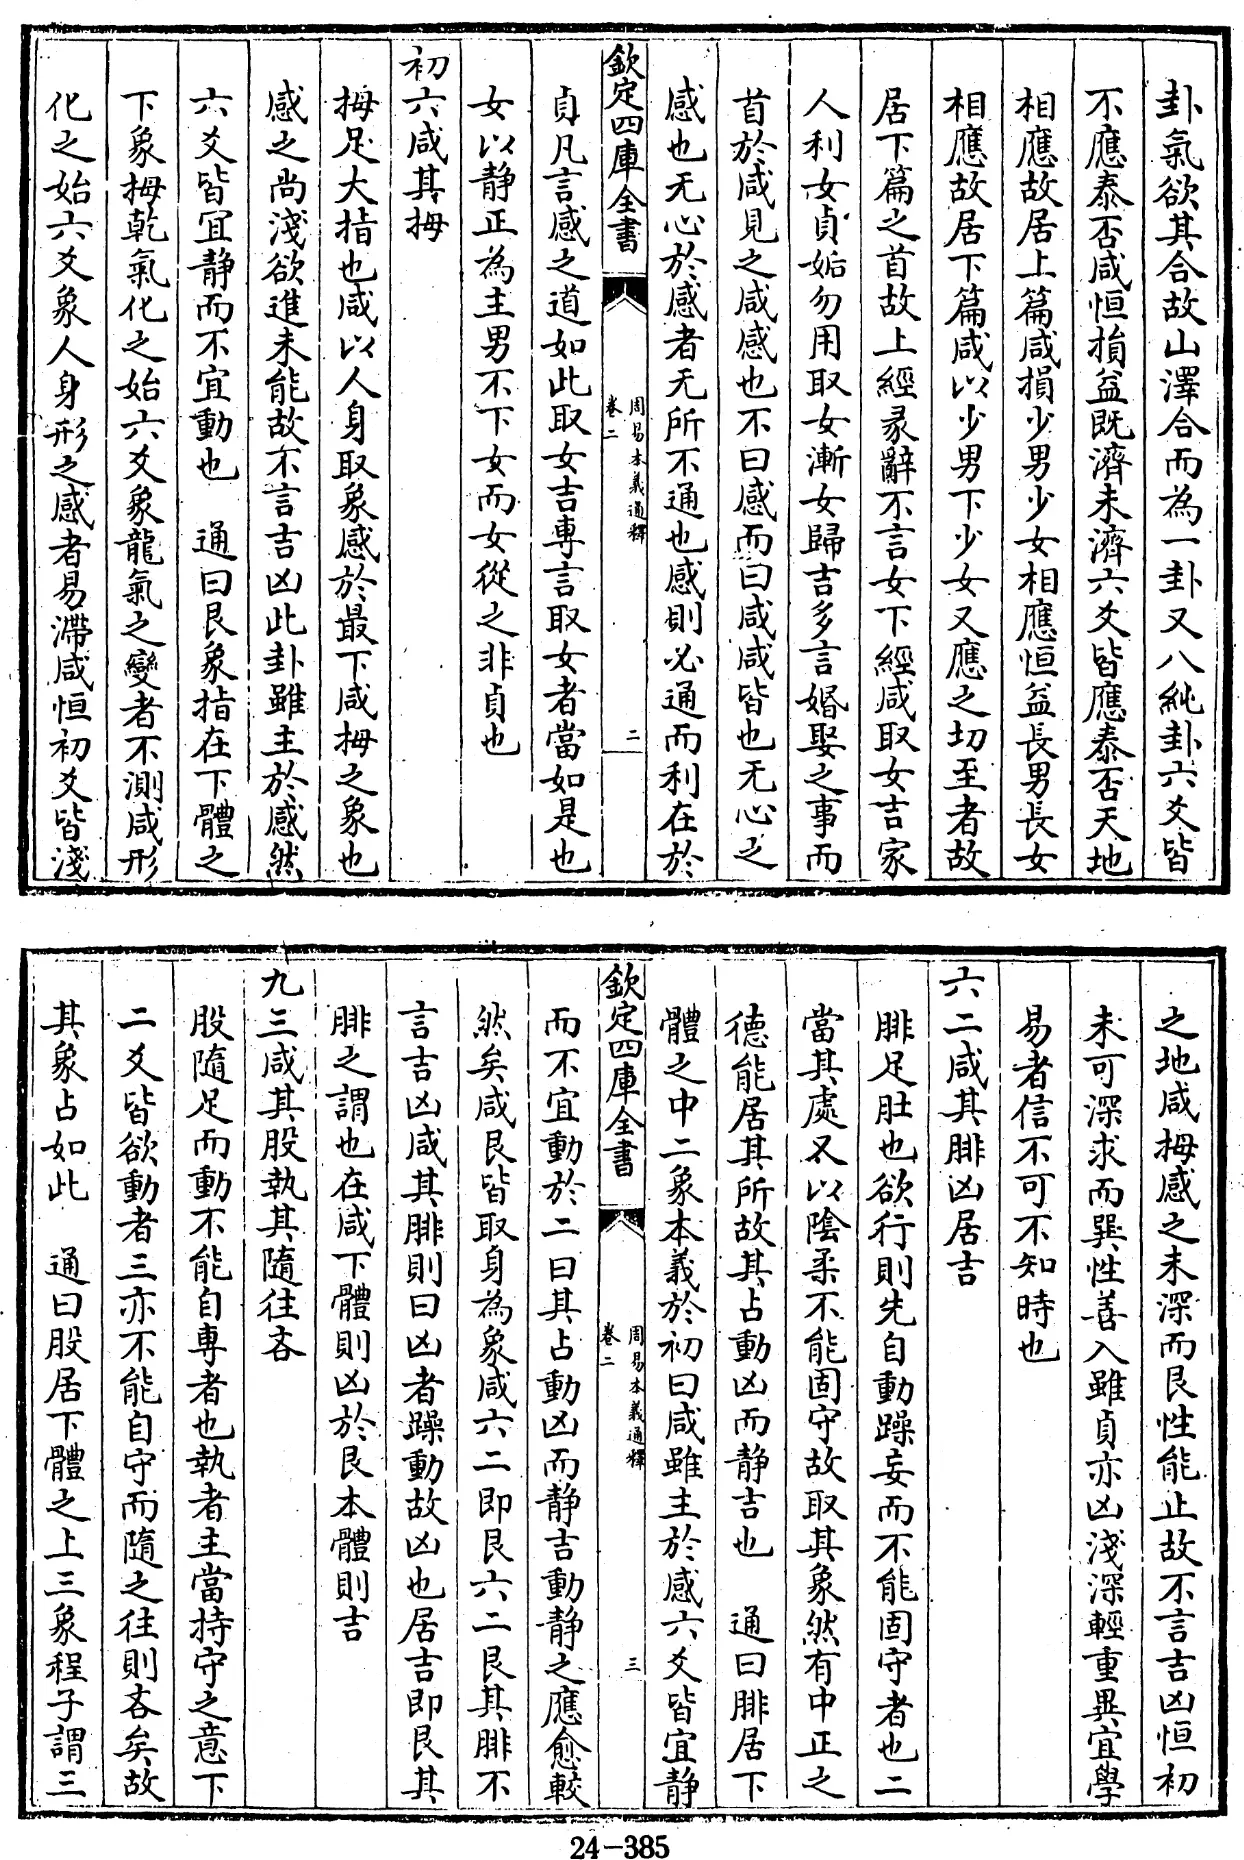 卦氣欲其合故山澤合而為一卦又八純卦六爻皆
不應泰否咸恒損益既濟未濟六爻皆應泰否天地
相應故居上篇咸損少男少女相應恒益長男長女
相應故居下篇咸以少男下少女又應之切至者故
居下篇之首故上經彖辭不言女下經咸取女吉家
人利女貞姤勿用取女漸女歸吉多言婚娶之事而
首於咸見之咸感也不曰感而曰咸咸皆也无心之
感也无心於感者无所不通也感則必通而利在於
欽定四庫全書
周易本義通釋
卷二
二
貞凡言感之道如此取女吉專言取女者當如是也
女以静正為主男不下女而女從之非貞也
初六咸其拇
拇足大指也咸以人身取象感於最下咸拇之象也
感之尚淺欲進未能故不言吉凶此卦雖主於感然
六爻皆宜静而不宜動也 通曰艮象指在下體之
下象拇乾氣化之始六爻象龍氣之變者不測咸形
化之始六爻象人身形之感者易滯咸恒初爻皆淺
之地咸拇感之未深而艮性能止故不言吉凶恒初
未可深求而巽性善入雖貞亦凶淺深輕重異宜學
易者信不可不知時也
六二咸其腓凶居吉
腓足肚也欲行則先自動躁妄而不能固守者也二
當其處又以陰柔不能固守故取其象然有中正之
德能居其所故其占動凶而静吉也 通曰腓居下
體之中二象本義於初曰咸雖主於感六爻皆宜静
欽定四庫全書
周易本義通釋
卷二
三
而不宜動於二曰其占動凶而静吉動静之應愈較
然矣咸艮皆取身為象咸六二即艮六二艮其腓不
言吉凶咸其腓則曰凶者躁動故凶也居吉即艮其
腓之謂也在咸下體則凶於艮本體則吉
九三咸其股執其隨往吝
股隨足而動不能自專者也執者主當持守之意下
二爻皆欲動者三亦不能自守而隨之往則吝矣故
其象占如此 通曰股居下體之上三象程子謂三
24-385